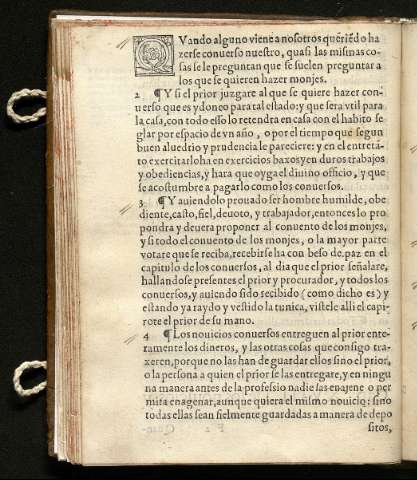 QVando alguno viene a nosotros queriẽdo ha
zerse conuerso nuestro, quasi las mismas co-
sas se le preguntan que se suelen preguntar a
los que se quieren hazer monjes.
2 ¶Y si el prior juzgare al que se quiere hazer con-
uerso que es ydoneo para tal estado: y que sera vtil para
la casa, con todo esso lo retendra en casa con el habito se
glar por espacio de vn año, o por el tiempo que segun
buen aluedrio y prudencia le pareciere: y en el entreta-
to exercitarloha en exercicios baxos y en duros trabajos
y obediencias, y hara que oyga el diuino officio, y que
se acostumbre a pagarlo como los conuersos.
3 ¶Y auiendolo prouado ser hombre humilde, obe
diente, casto, fiel, deuoto, y trabajador, entonces lo pro
pondra y deuera proponer al conuento de los monjes,
y si todo el conuento de los monjes, o la mayor parte
votare que se reciba, recebirse ha con beso de paz en el
capitulo de los conuersos, al dia que el prior señalare,
hallandose presentes el prior y procurador, y todos los
conuersos, y auiendo sido recibido (como dicho es) y
estando ya raydo y vestido la tunica, vistele alli el capi-
rote el prior de su mano.
4 ¶Los nouicios conuersos entreguen al prior ente-
ramente los dineros, y las otras cosas que consigo tra-
xeren, porque no las han de guardar ellos sino el prior,
o la persona a quien el prior se las entregare, y en ningu
na manera antes de la professio nadie las enajene o per
mita enagenar, aunque quiera el mismo nouicio: sino
todas ellas sean fielmente guardadas a manera de depo
sitos,